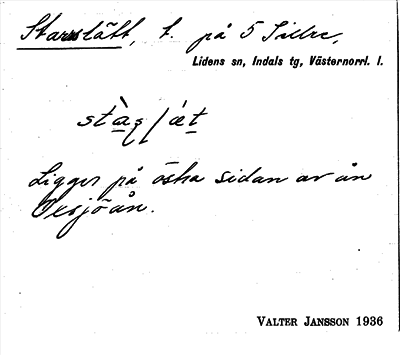 Starrslått, t. på 5 Sillre,
Lidens sn, Indals tg, Västernorrl. l.
Ligger på östra sidan av ån
Oxsjöån.
VALTER JANSSON 1936